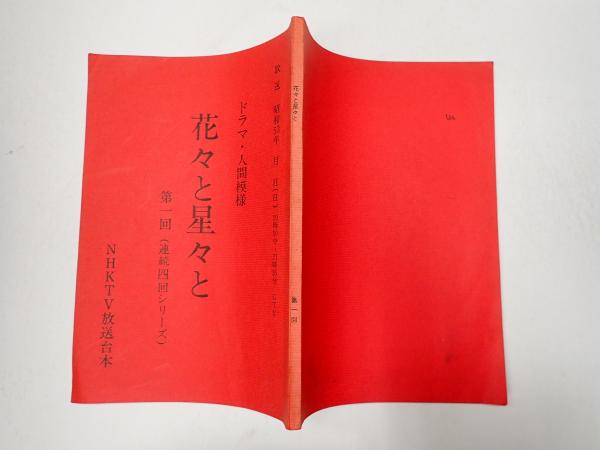 放送 昭和53年 月 日(日)
ドラマ・人間模様
花々と星々と
第一回(連続四回シリーズ)
NHKTV放送台本
花々と星々と
第一回